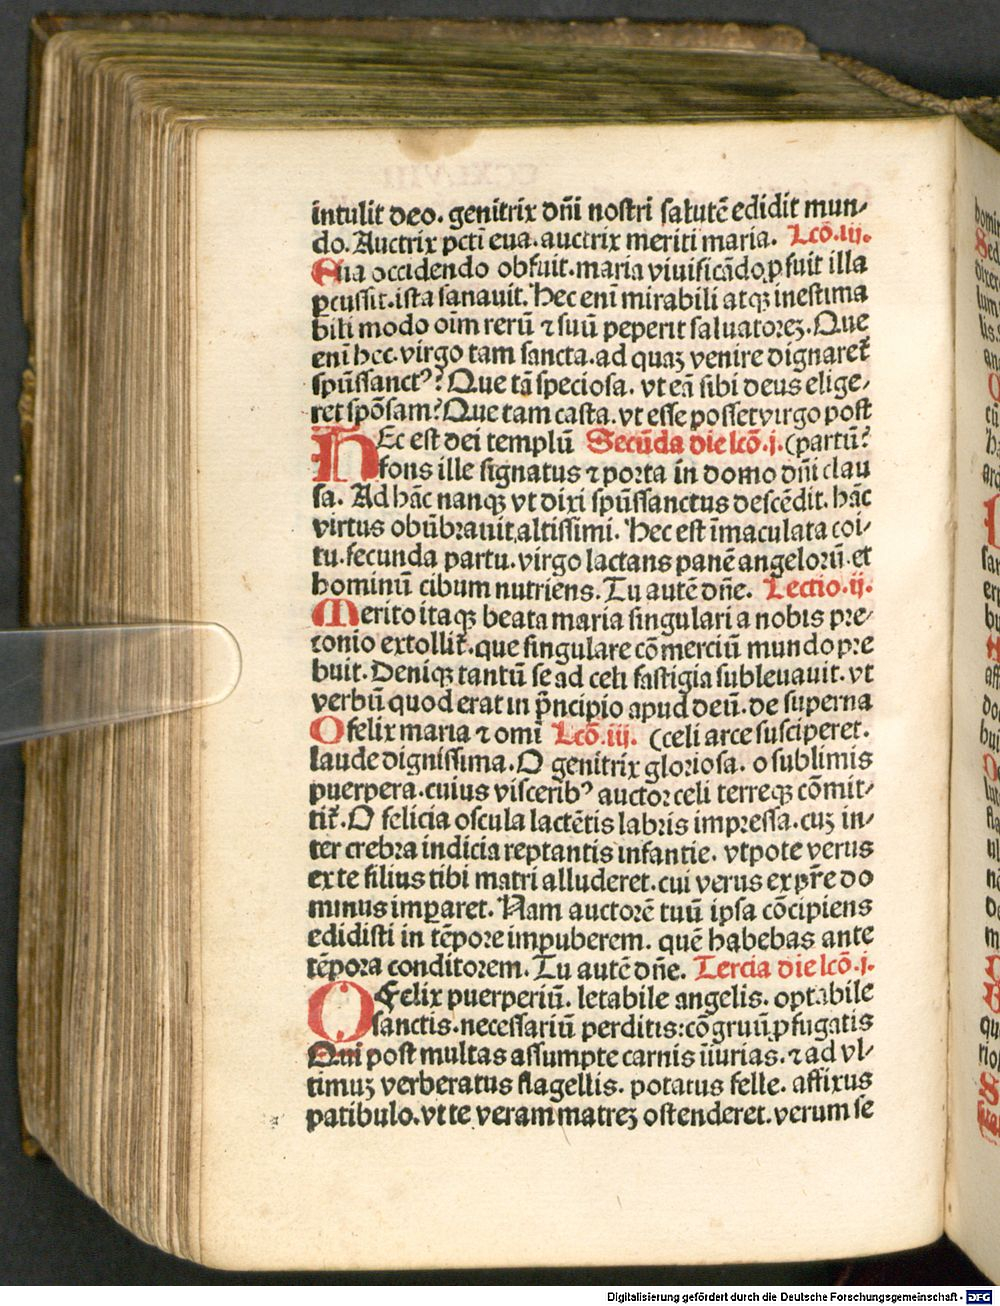 intulit deo. genitrix dn̄i nostri salutē edidit mun⸗
do. Auctrix pcti eua. auctrix meriti maria. Lcō.iij.
Eua occidendo obfuit. maria viuificādo ꝓfuit illa
ꝑcussit. ista sanauit. Hec enī mirabili atqꝫ inestima
bili modo oīm rerū ⁊ suū peperit saluatoreꝫ. Que
enī hec. virgo tam sancta. ad quaꝫ venire dignaret᷑
spūssanctꝰ? Que tā speciosa. vt eā sibi deus elige⸗
ret spōsam? Que tam casta. vt esse posset virgo post
HEc est dei templū Secūda die lcō.j. (partū?
fons ille signatus ⁊ porta in domo dn̄i clau
sa. Ad hāc nanqꝫ vt dixi spūssanctus descēdit. hāc
virtus obūbrauit altissimi. Hec est īmaculata coi⸗
tu. fecunda partu. virgo lactans panē angelorū. et
hominū cibum nutriens. Tu autē dn̄e. Lectio.ij.
Merito itaqꝫ beata maria singulari a nobis pre⸗
conio extollit᷑. que singulare cōmerciū mundo pre
buit. Deniqꝫ tantū se ad celi fastigia subleuauit. vt
verbū quod erat in p̄ncipio apud deū. de superna
O felix maria ⁊ omī Lcō.iij. (celi arce susciperet.
laude dignissima. O genitrix gloriosa. o sublimis
puerpera. cuius visceribꝰ auctor celi terreqꝫ cōmit⸗
tit᷑. O felicia oscula lactētis labris impressa. cuꝫ in⸗
ter crebra indicia reptantis infantie. vtpote verus
ex te filius tibi matri alluderet. cui verus ex pr̄e do
minus imꝑaret. Nam auctorē tuū ipsa cōcipiens
edidisti in tēpore impuberem. quē habebas ante
tēpora conditorem. Tu autē dn̄e. Tercia die lcō.j.
O Felix puerperiū. letabile angelis. optabile
sanctis. necessariū perditis: cōgruū ꝓfugatis
Qui post multas assumpte carnis iīurias. ⁊ ad vl⸗
timuꝫ verberatus flagellis. potatus felle. affixus
patibulo. vt te veram matreꝫ ostenderet. verum se
Digitalisierung gefördert durch die Deutsche Forschungsgemeinschaft - DFG